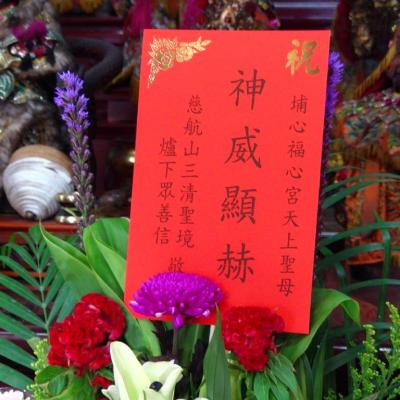 祝
埔心福心宮天上聖母
神威顯赫
慈航山三清聖境
爐下眾善信 敬